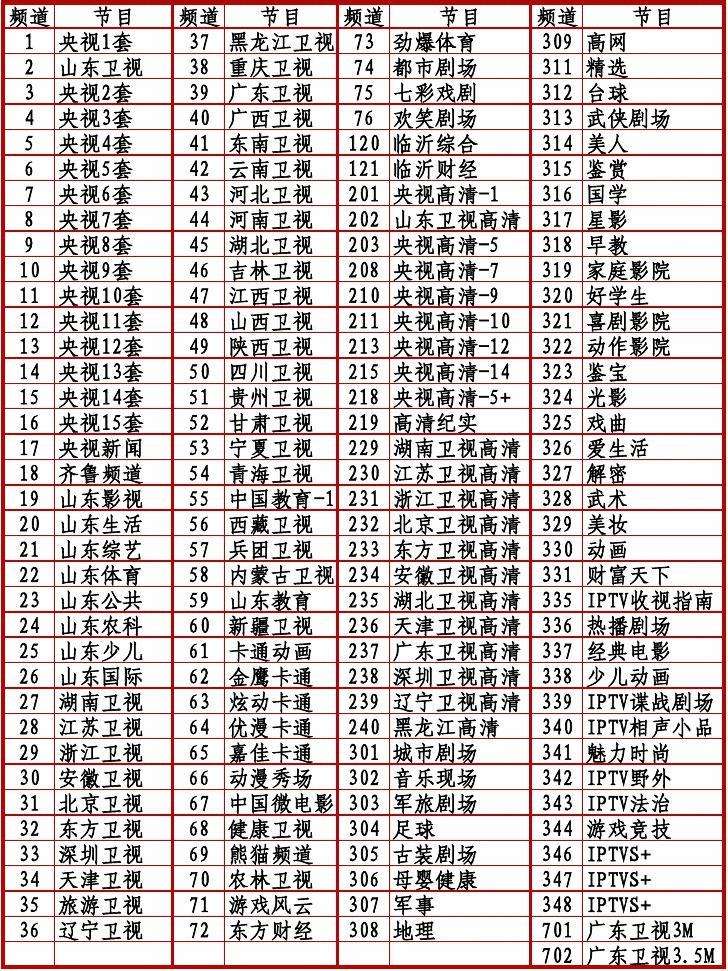 频道 节目 频道 节目 频道 节目 频道 节目
1 央视1套 37 黑龙江卫视 73 劲爆体育 309 高网
2 山东卫视 38 重庆卫视 74 都市剧场 311 精选
3 央视2套 39 广东卫视 75 七彩戏剧 312 台球
4 央视3套 40 广西卫视 76 欢笑剧场 313 武侠剧场
5 央视4套 41 东南卫视 120 临沂综合 314 美人
6 央视5套 42 云南卫视 121 临沂财经 315 鉴赏
7 央视6套 43 河北卫视 201 央视高清-1 316 国学
8 央视7套 44 河南卫视 202 山东卫视高清 317 星影
9 央视8套 45 湖北卫视 203 央视高清-5 318 早教
10 央视9套 46 吉林卫视 208 央视高清-7 319 家庭影院
11 央视10套 47 江西卫视 210 央视高清-9 320 好学生
12 央视11套 48 山西卫视 211 央视高清-10 321 喜剧影院
13 央视12套 49 陕西卫视 213 央视高清-12 322 动作影院
14 央视13套 50 四川卫视 215 央视高清-14 323 鉴宝
15 央视14套 51 贵州卫视 218 央视高清-5+ 324 光影
16 央视15套 52 甘肃卫视 219 高清纪实 325 戏曲
17 央视新闻 53 宁夏卫视 229 湖南卫视高清 326 爱生活
18 齐鲁频道 54 青海卫视 230 江苏卫视高清 327 解密
19 山东影视 55 中国教育-1 231 浙江卫视高清 328 武术
20 山东生活 56 西藏卫视 232 北京卫视高清 329 美妆
21 山东综艺 57 兵团卫视 233 东方卫视高清 330 动画
22 山东体育 58 内蒙古卫视 234 安徽卫视高清 331 财富天下
23 山东公共 59 山东教育 235 湖北卫视高清 335 IPTV收视指南
24 山东农科 60 新疆卫视 236 天津卫视高清 336 热播剧场
25 山东少儿 61 卡通动画 237 广东卫视高清 337 经典电影
26 山东国际 62 金鹰卡通 238 深圳卫视高清 338 少儿动画
27 湖南卫视 63 炫动卡通 239 辽宁卫视高清 339 IPTV谍战剧场
28 江苏卫视 64 优漫卡通 240 黑龙江高清 340 IPTV相声小品
29 浙江卫视 65 嘉佳卡通 301 城市剧场 341 魅力时尚
30 安徽卫视 66 动漫秀场 302 音乐现场 342 IPTV野外
31 北京卫视 67 中国微电影 303 军旅剧场 343 IPTV法治
32 东方卫视 68 健康卫视 304 足球 344 游戏竞技
33 深圳卫视 69 熊猫频道 305 古装剧场 346 IPTVS+
34 天津卫视 70 农林卫视 306 母婴健康 347 IPTVS+
35 旅游卫视 71 游戏风云 307 军事 348 IPTVS+
36 辽宁卫视 72 东方财经 308 地理 701 广东卫视3M
702 广东卫视3.5M